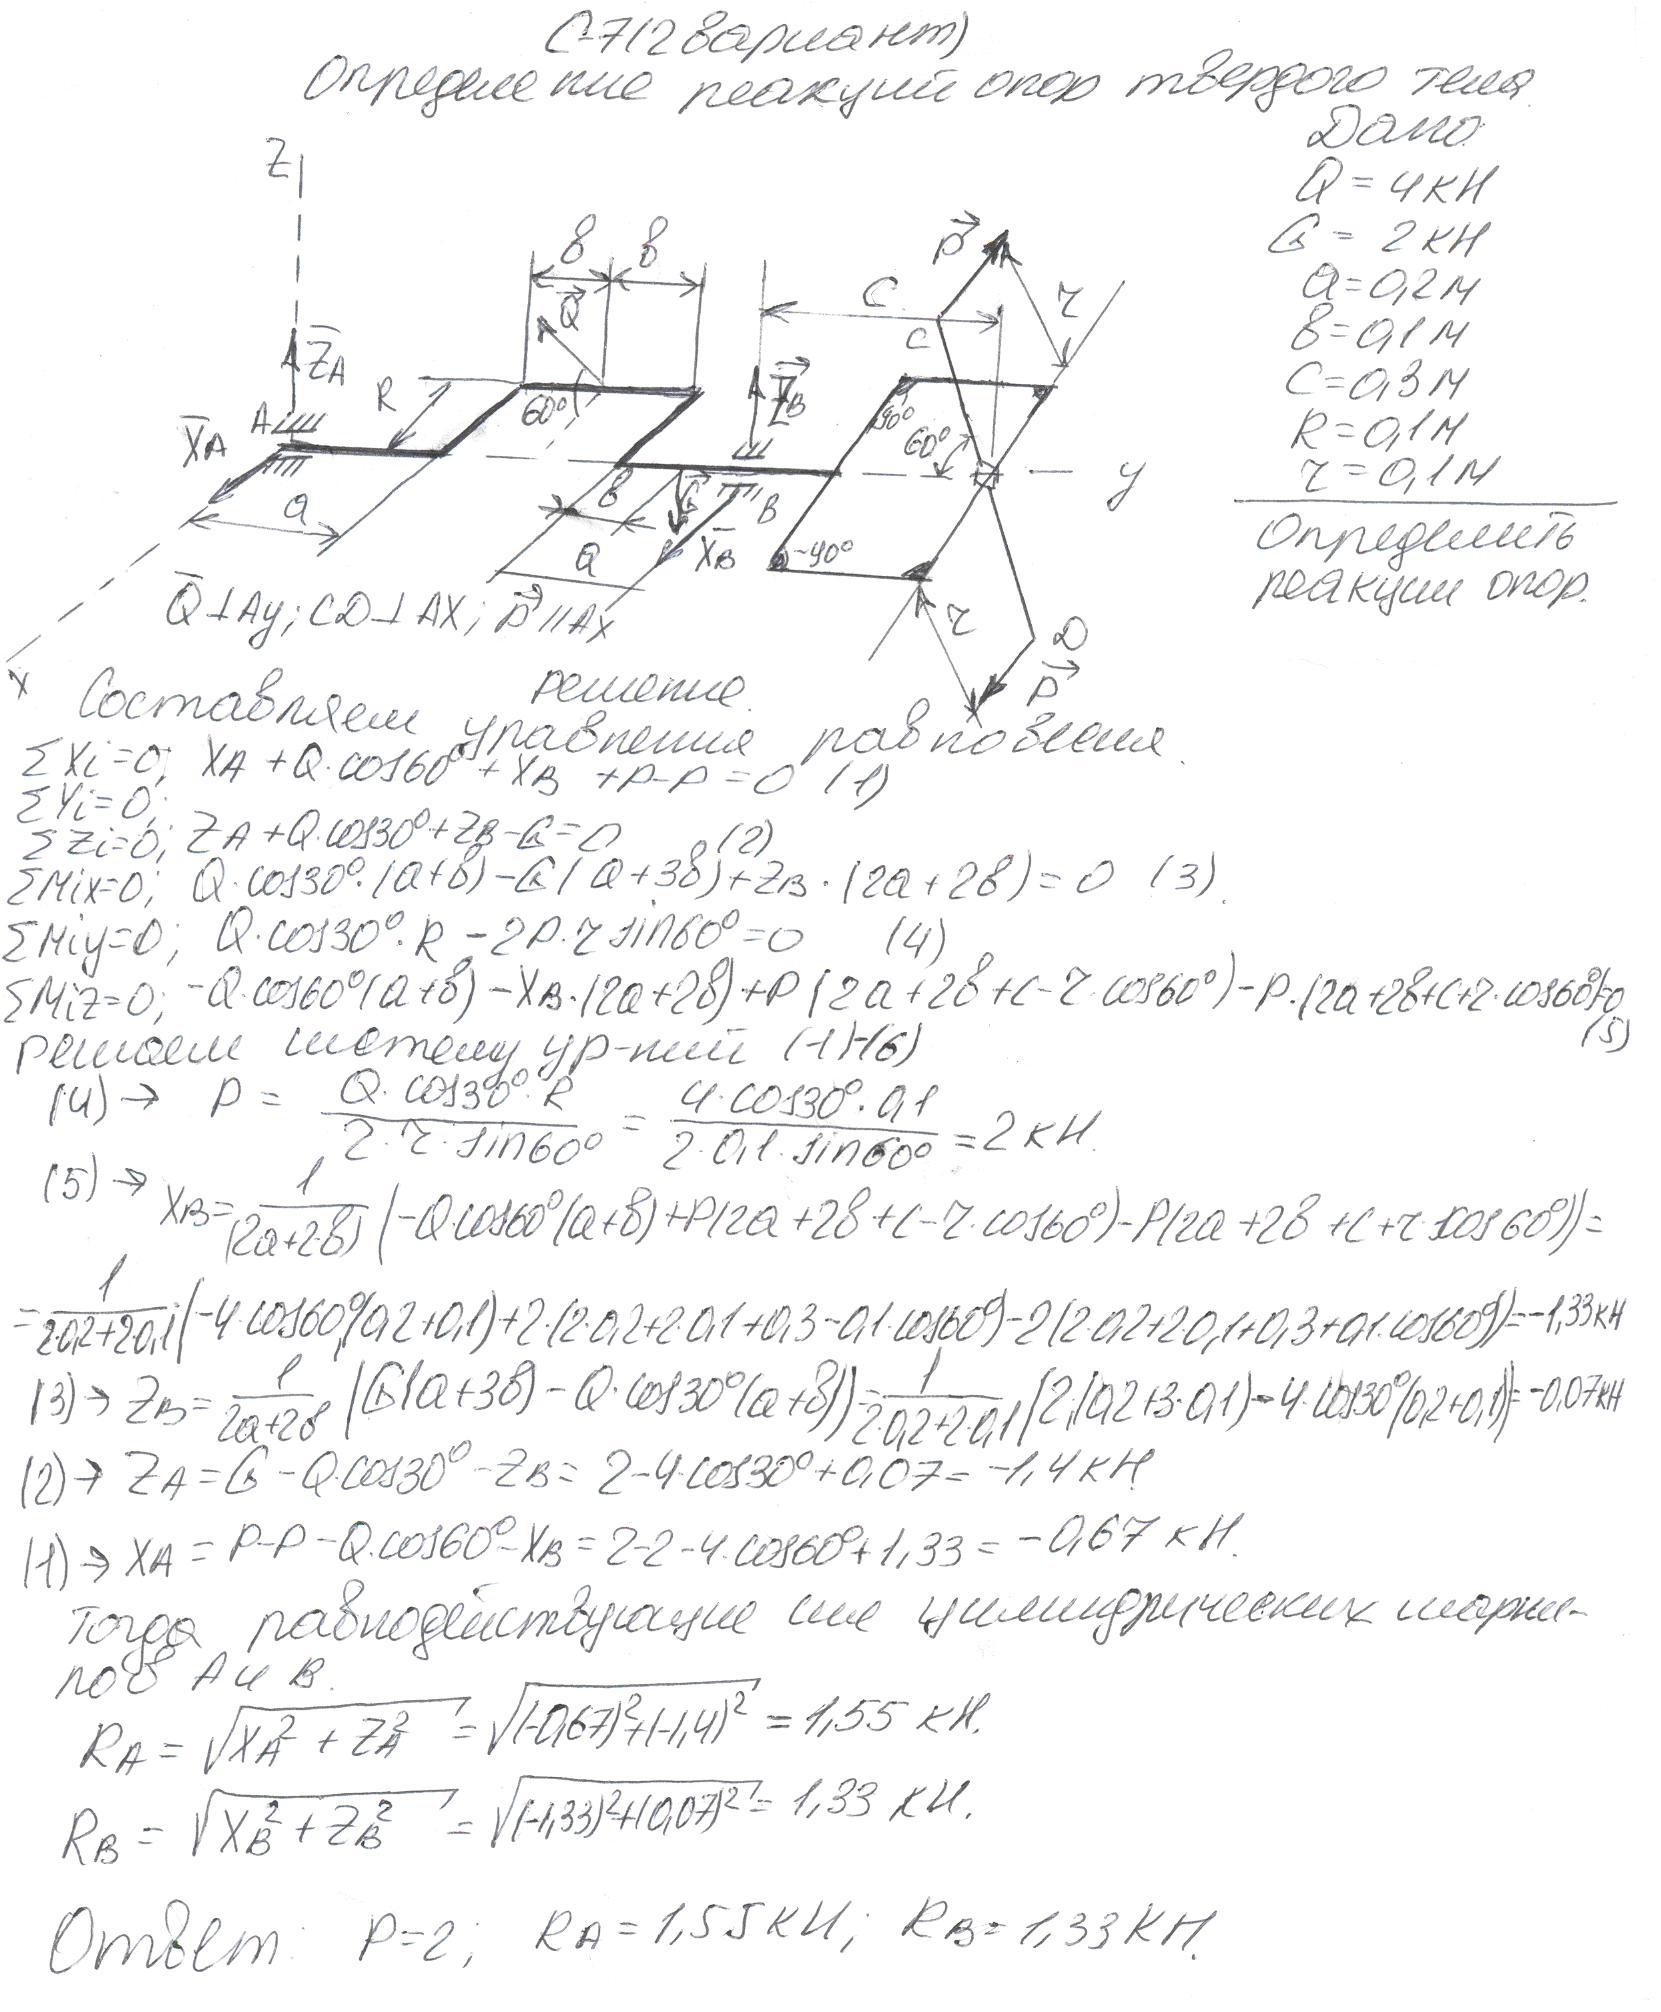 С-7 (2 вариант)
Определение реакций опор твердого тела
Дано:
Q = 4 кН
G = 2 кН
a = 0,2 м
b = 0,1 м
C = 0,3 м
R = 0,1 м
r = 0,1 м
Определить
реакции опор.
Z
Z̅A
X̅A
A
R
a
b b
Q⃗
60°
b
a
G⃗
Z⃗B
X̅B
B
C
C
P⃗
r
90°
60°
-90°
y
r
D
P⃗
x
Q̅⊥Ay; CD⊥AX; P⃗//AX
решение.
Составляем уравнения равновесия.
ΣXi=0; XA + Q·cos60° + XB + P-P = 0 (1)
ΣYi=0;
ΣZi=0; ZA + Q·cos30° + ZB - G = 0 (2)
ΣMix=0; Q·cos30°·(a+b) - G(a+3b) + ZB·(2a+2b) = 0 (3).
ΣMiy=0; Q·cos30°·R - 2P·r sin60° = 0 (4)
ΣMiz=0; -Q·cos60°(a+b) - XB·(2a+2b) + P(2a+2b+c-r·cos60°) - P·(2a+2b+c+r·cos60°)=0
(5)
решаем систему ур-ний (1)-(6)
(4) → P = Q·cos30°·R / 2·r·sin60° = 4·cos30°·0,1 / 2·0,1·sin60° = 2 кН.
(5) → XB = 1/(2a+2·b) (-Q·cos60°(a+b)+P(2a+2b+c-r·cos60°)-P(2a+2b+c+r·cos60°)) =
= 1/2·0,2+2·0,1 (-4·cos60°(0,2+0,1)+2·(2·0,2+2·0,1+0,3-0,1·cos60°)-2(2·0,2+2·0,1+0,3+0,1·cos60°))=-1,33кН
(3) → ZB = 1/2a+2b (G(a+3b) - Q·cos30°(a+b)) = 1/2·0,2+2·0,1 (2·(0,2+3·0,1) - 4·cos30°(0,2+0,1)) = -0,07кН
(2) → ZA = G - Q·cos30° - ZB = 2-4·cos30°+0,07 = -1,4 кН
(1) → XA = P-P - Q·cos60° - XB = 2-2-4·cos60°+1,33 = -0,67 кН.
Тогда равнодействующие сил цилиндрических шарни-
ров A и B.
RA = √XA² + ZA² = √(-0,67)²+(-1,4)² = 1,55 кН.
RB = √XB² + ZB² = √(-1,33)²+(0,07)² = 1,33 кН.
Ответ: P=2; RA = 1,55 кН; RB = 1,33 кН.